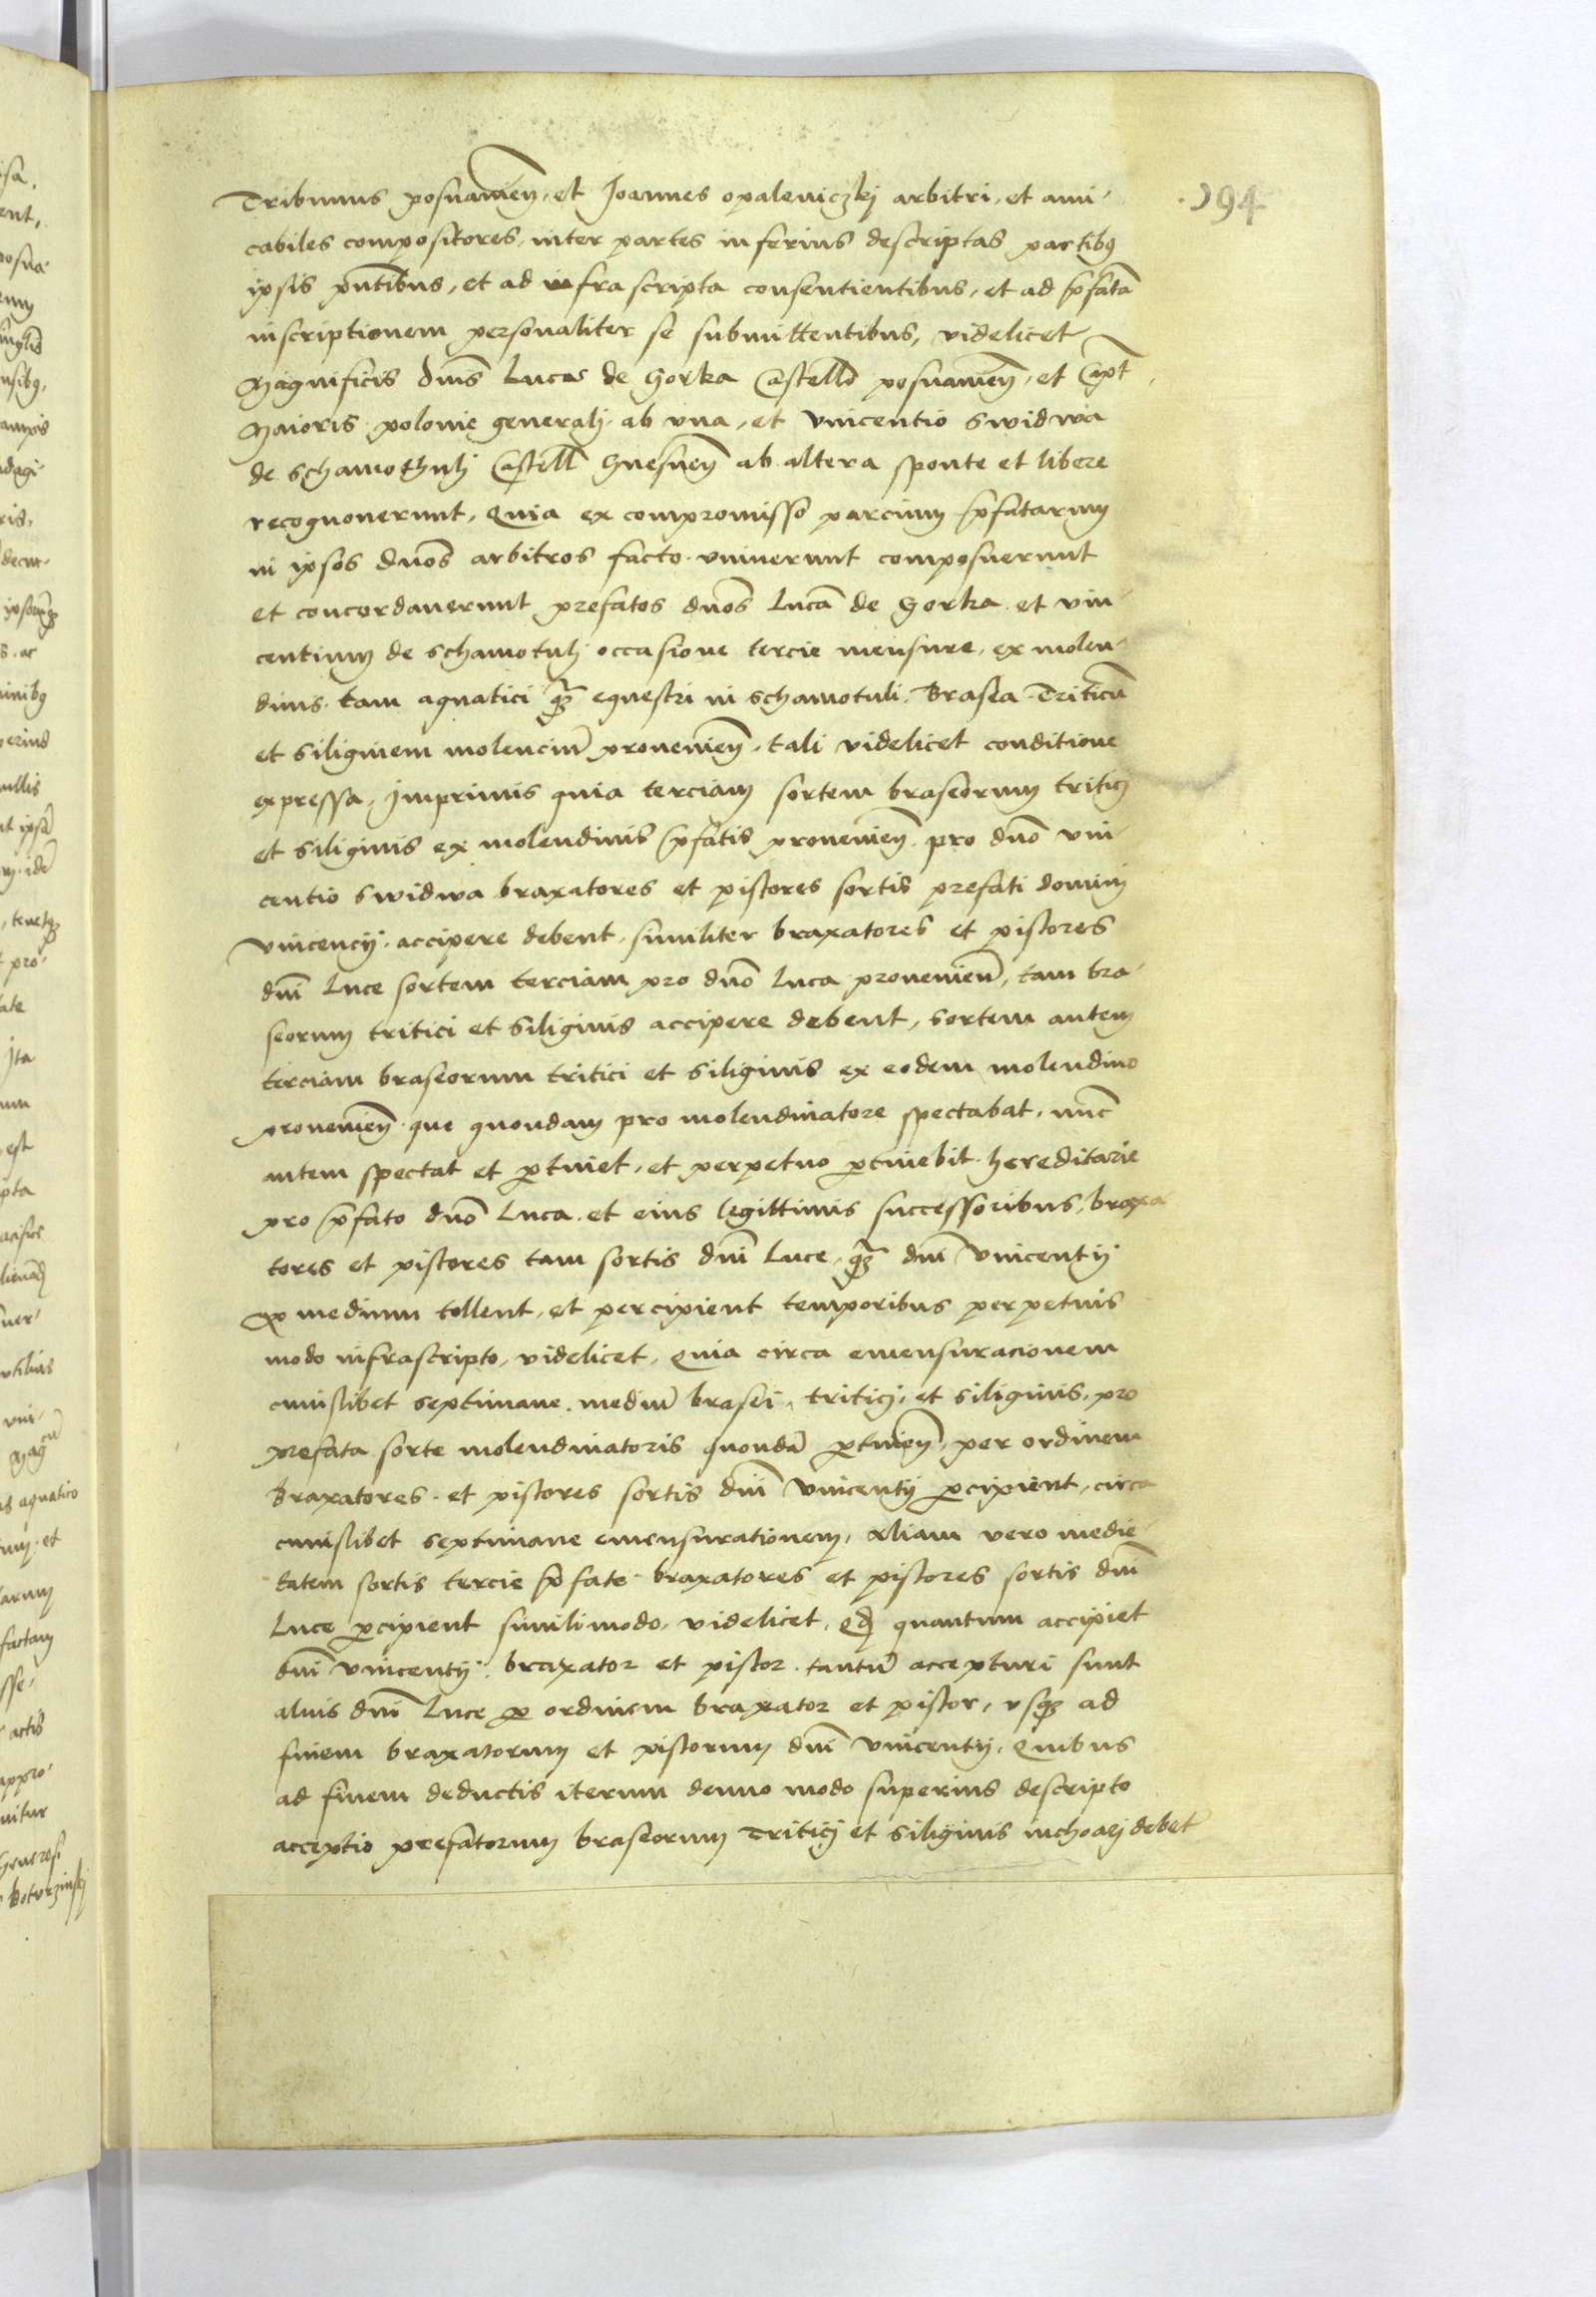 194
Tribunus posnanień, et Joannes opaleniczkj arbitri, et ami-
cabiles compositores, inter partes inferius descriptas partibꝫ
ipsis pntibus, et ad infra scripta consentientibus, et ad pfatā
inscriptionem personaliter se submittentibus, videlicet
Magnificis dnis Lucas de Gorka Castellō posnanień, et Capt
Maioris polonie generalj ab vna, et Vincentio Swidwa
de Schamothulj Castell Gnesneń ab altera sponte et libere
recognouerunt, Quia ex compromisso parcium pfatarum
in ipsos dnos arbitros facto vniuerunt composuerunt
et concordauerunt prefatos dnos Lucā de Gorka et vin-
centium de Schamotulj occasione tercie mensure, ex molen-
dinis tam aquatici qꝫ equestri in Schamotuli, Brasea Triticū
et siliginem molenciū prouenień, tali videlicet conditione
expressa, Jmprimis quia terciam sortem braseorum triticj
et siliginis ex molendinis pfatis prouenień pro dno vin-
centio Swidwa braxatores et pistores sortis prefati dominj
Vincencij accipere debent, similiter braxatores et pistores
dni Luce sortem terciam pro dno Luca prouenień, tam bra-
seorum tritici et siliginis accipere debent, Sortem autem
terciam braseorum tritici et siliginis ex eodem molendino
prouenień que quondam pro molendinatore spectabat, nūc
autem spectat et ptinet, et perpetuo ptinebit hereditarie
pro pfato dno Luca et eius legittimis successoribus, braxa
tores et pistores tam sortis dni Luce qꝫ dni Vincentij
p medium tollent, et percipient temporibus perpetuis
modo infrascripto, videlicet, Quia circa emensuracionem
cuiuslibet septimane mediū brasei, triticj, et siliginis, pro
prefata sorte molendinatoris quondā ptinēn, per ordinem
Braxatores et pistores sortis dni Vincentij pcipient, circa
cuiuslibet septimane emensurationem, Aliam vero medie
tatem sortis tercie pfate braxatores et pistores sortis dni
Luce pcipient simili modo, videlicet, qđ quantum accipiet
dni Vincentij braxator et pistor tantū accepturi sunt
alius dni Luce p ordinem braxator et pistor, vsqꝫ ad
finem braxatorum et pistorum dni Vincentij, Quibus
ad finem deductis iterum denuo modo superius descripto
acceptio prefatorum braseorum Triticj et siliginis inchoarj debet